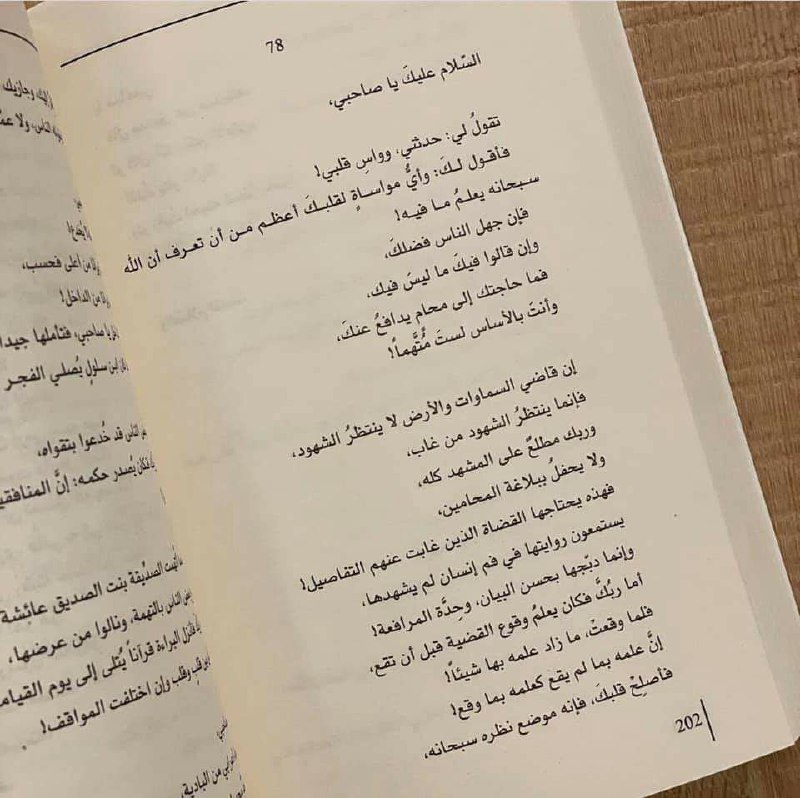 78
السّلام عليكَ يا صاحبي،
تقولُ لي: حدثني، وواسِ قلبي!
فأقول لـكَ: وأيُّ مواساةٍ لقلبـكَ أعظم مـن أن تعرف أن الله
سبحانه يعلمُ مـا فيـه!
فإن جهل الناس فضلكَ،
وإن قالوا فيكَ ما ليسَ فيك،
فما حاجتك إلى محام يدافعُ عنكَ،
وأنتَ بالأساس لستَ مُتَّهماً!
إن قاضي السماوات والأرض لا ينتظرُ الشهود،
فإنما ينتظرُ الشهود من غاب،
وربك مطلعٌ على المشهد كله،
ولا يحفلُ ببلاغة المحامين،
فهذه يحتاجها القضاة الذين غابت عنهم التفاصيل!
يستمعون روايتها في فم إنسان لم يشهدها،
وإنما دبّجها بحسن البيان، وحِدَّة المرافعة!
أما ربُكَّ فكان يعلمُ وقوع القضية قبل أن تقع،
فلما وقعتْ، ما زاد علمه بها شيئاً!
إنَّ علمه بما لم يقع كعلمه بما وقع!
فأصلِحْ قلبكَ، فإنه موضع نظره سبحانه،
202
إليك وجازيك
الناس، ولا
من أعلى فحسب،
من الداخل!
يا صاحبي، فتأملها جيدا
ابن سلولٍ يُصلي الفجر
الناس قد خُدعوا بتقواه،
يُصدر حكمه: إنَّ المنافقي
الصدّيقة بنت الصديق عائشة
الناس بالتهمة، ونالوا من عرضها،
البراءة قرآناً يُتلى إلى يوم القيام
وقلب وإن اختلفت المواقف!
من البادية،